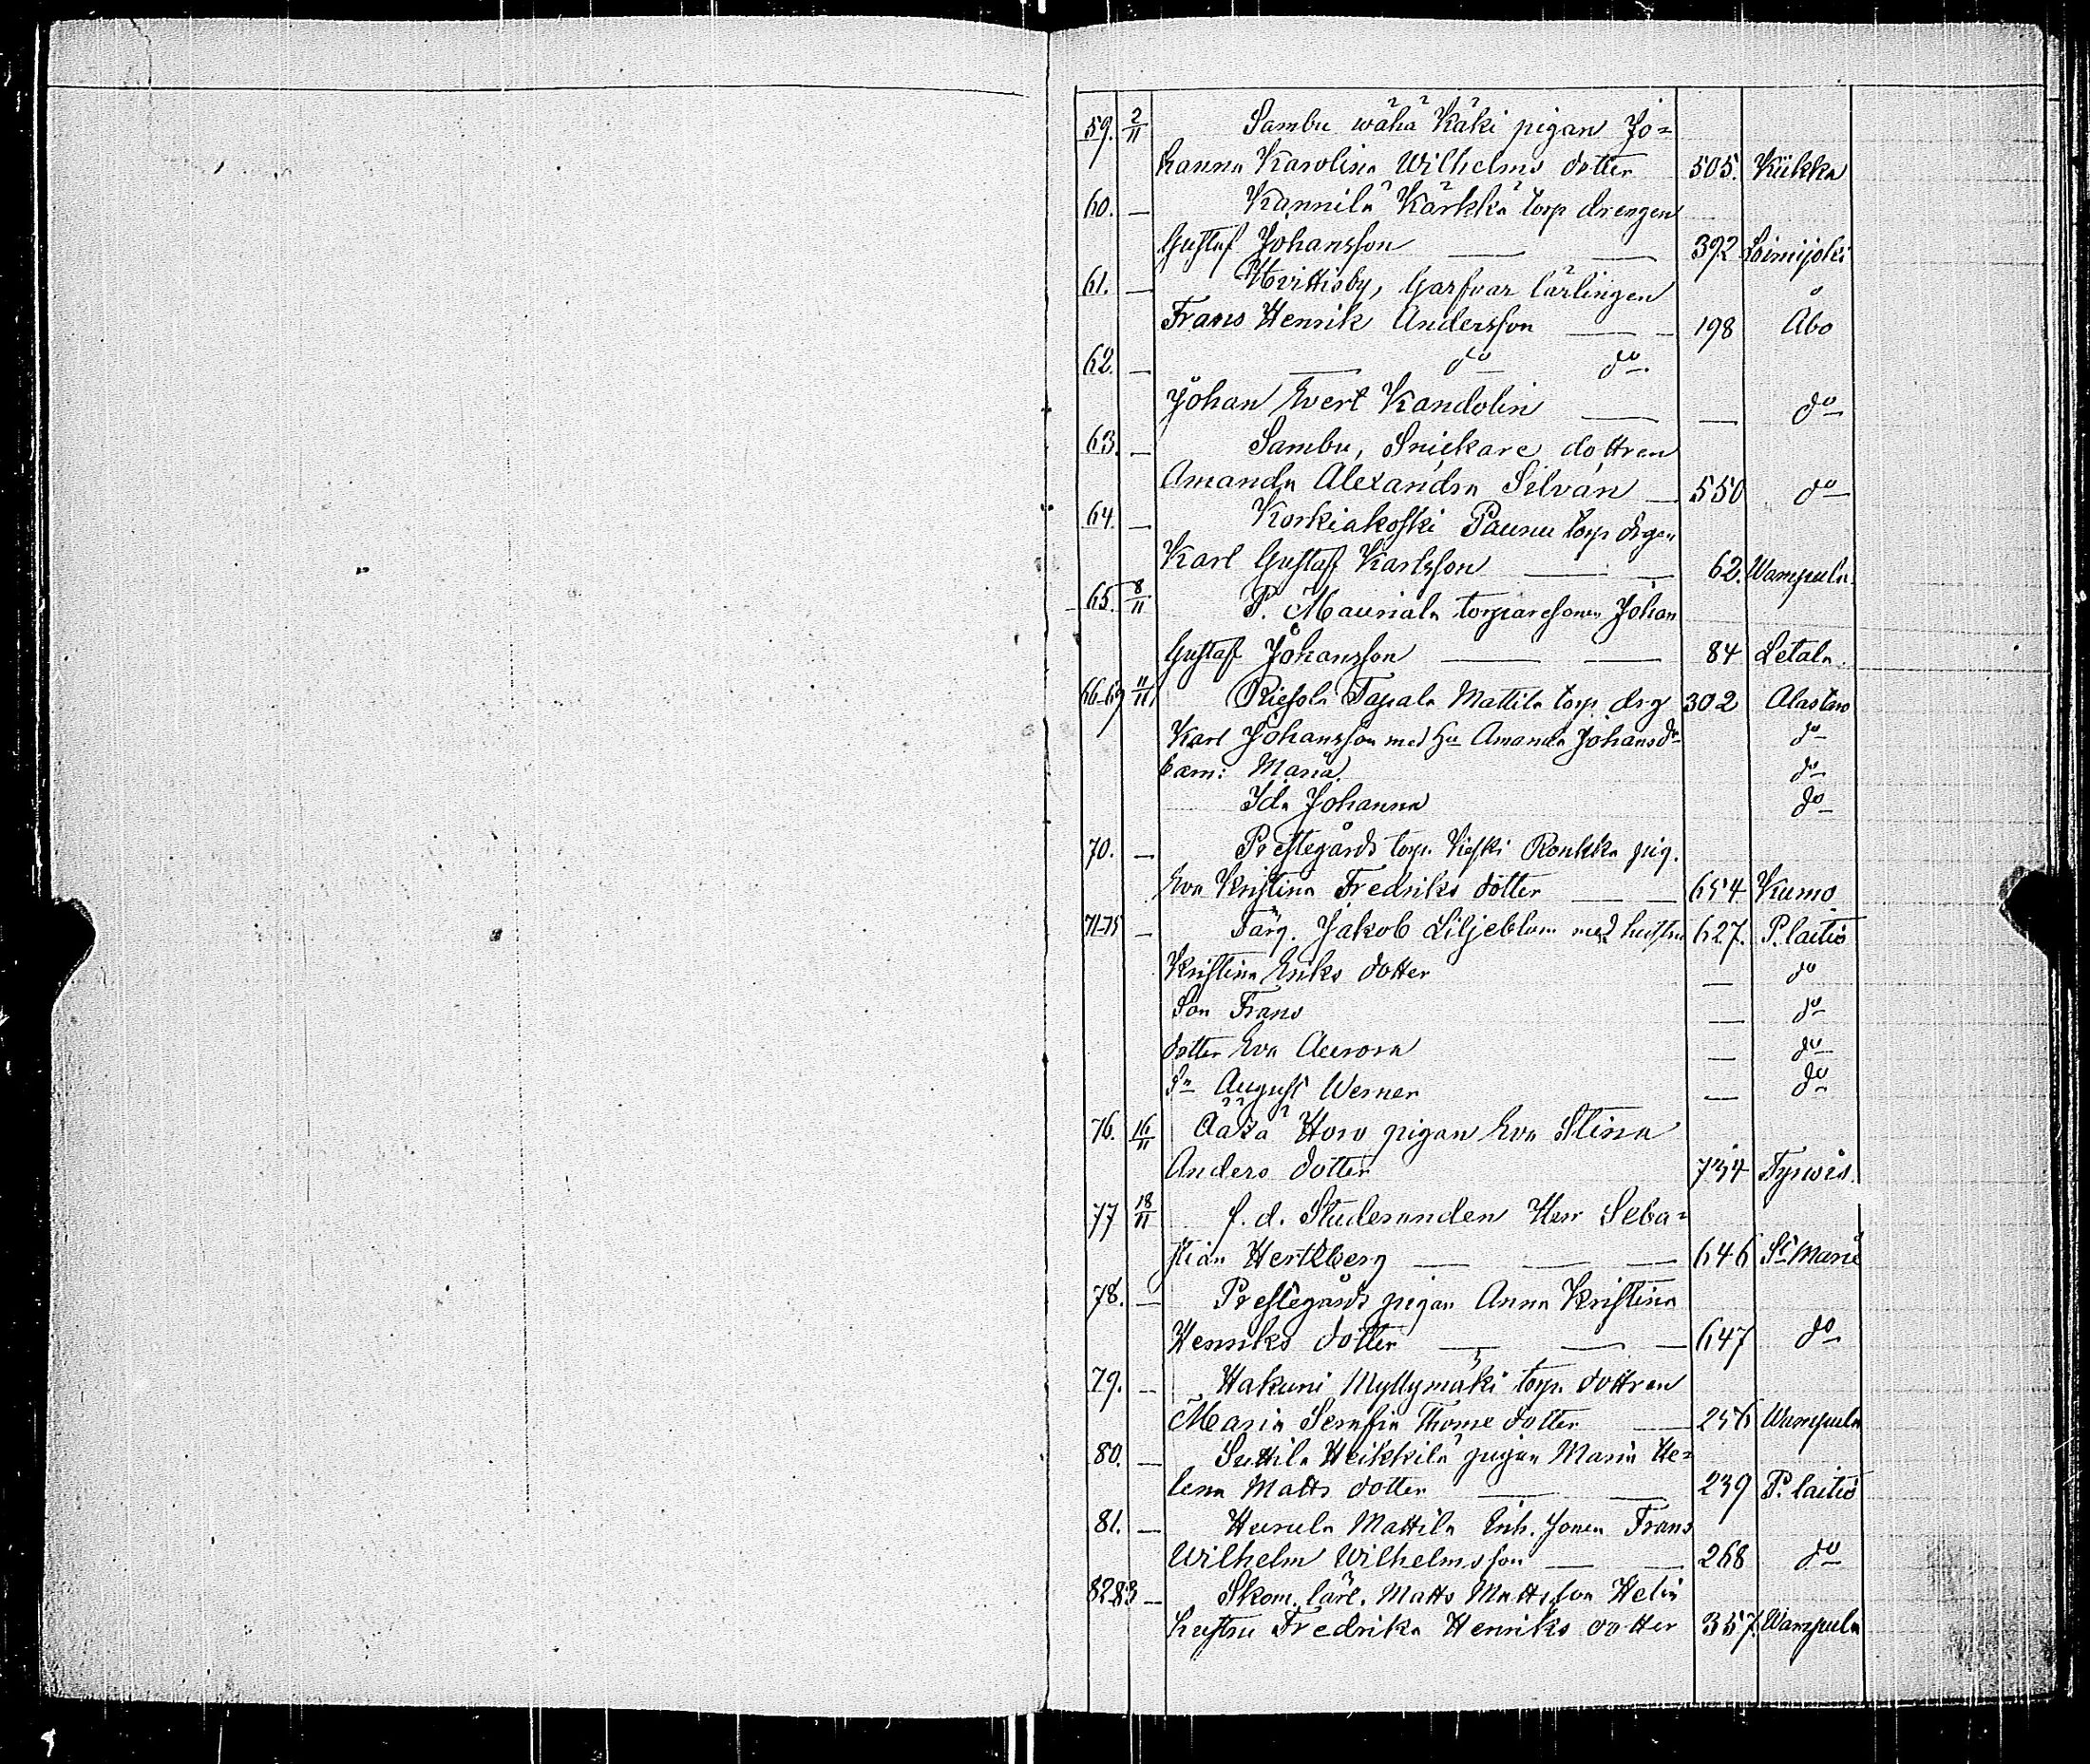 59. 2/11 Sambu wähä Käki pigan Jo=
hanna Karolina Wilhelms dotter 505. Kiikka
60. — Kännilä Kärkkä torp drengen
Gustaf Johansson — — 392 Loimijoki
61. — Hvittisby, Garfvar lärlingen
Frans Henrik Andersson — — 198 Åbo
62. — — do do
Johan Evert Kandolin — — do
63. — Sambu, Snickare dottren
Amanda Alexandra Silvan — 550 do
64. — Korkiakoski Paunu torp drgen
Karl Gustaf Karlsson — — 62. Wampula
65. 8/11 P. Mauriala torparesonen Johan
Gustaf Johansson — — 84 Letala
66-69 11/11 Riesola Tapala Mattila torp. drg 302 Alastaro
Karl Johansson med Hu Amanda Johansdr do
barn: Maria do
Ida Johanna do
70. — Prestegårds torp. Kieski Ronkka pig.
Eva Kristina Fredriks dotter — — 654 Kumo
71-75 — Färg. Jakob Liljeblom med hustru 627. P. laitio
Kristina Eriks dotter — do
Son Frans — do
dotter Eva Aurora — do
Sn August Werner — do
76. 16/11 Horo pigan Eva Stina
Anders dotter 734 Tyrwis
77 18/11 f. d. Studeranden Herr Seba=
stian Hertzberg — — — 646 St Marie
78. — Prestegårds pigan Anna Kristina
Henriks dotter — — — 647 do
79. — Hakuni Myllymäki torp. dottren
Maria Serafia Thome dotter — 256 Wampula
80. — Suttila Heikkilä pigan Maria He=
lena Matts dotter — — 239 P. laitio
81. — Hurula Mattila Inh. sonen Frans
Wilhelm Wilhelmsson — — 268 do
82 83 — Skom. lärl. Matts Mattsson Helin
hustru Fredrika Henriks dotter 357. Wampula